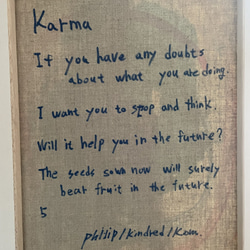 Karma
If you have any doubts
about what you are doing.
I want you to spop and think,
Will it help you in the future?
The seeds sown now will surely
bear fruit in the future.
5
philip/kindred/Kom.